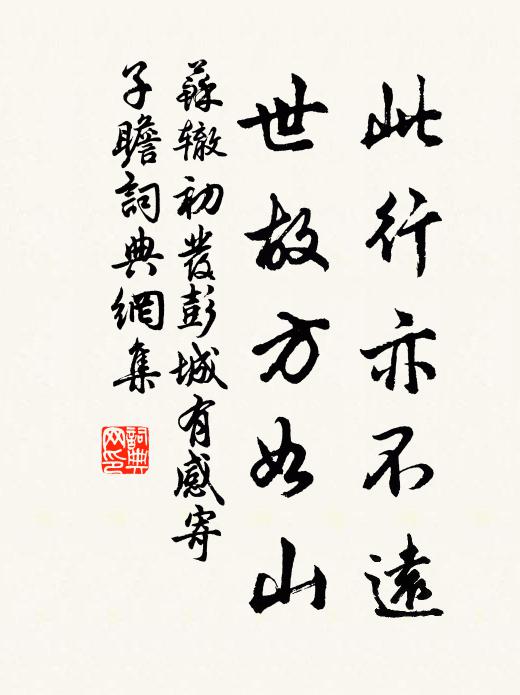 此行亦不遠
世故方如山
蘇轍初發彭城有感寄
子瞻詞典網集
詞典
网印